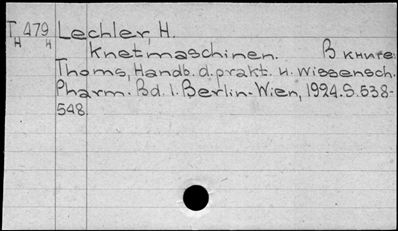 T 479 Lechler, H.
н н
Knetmaschinen. В книге:
Thoms, Handb. d. prakt. u. wissensch.
Pharm. Bd. 1. Berlin-Wien, 1924. S. 538-
548.